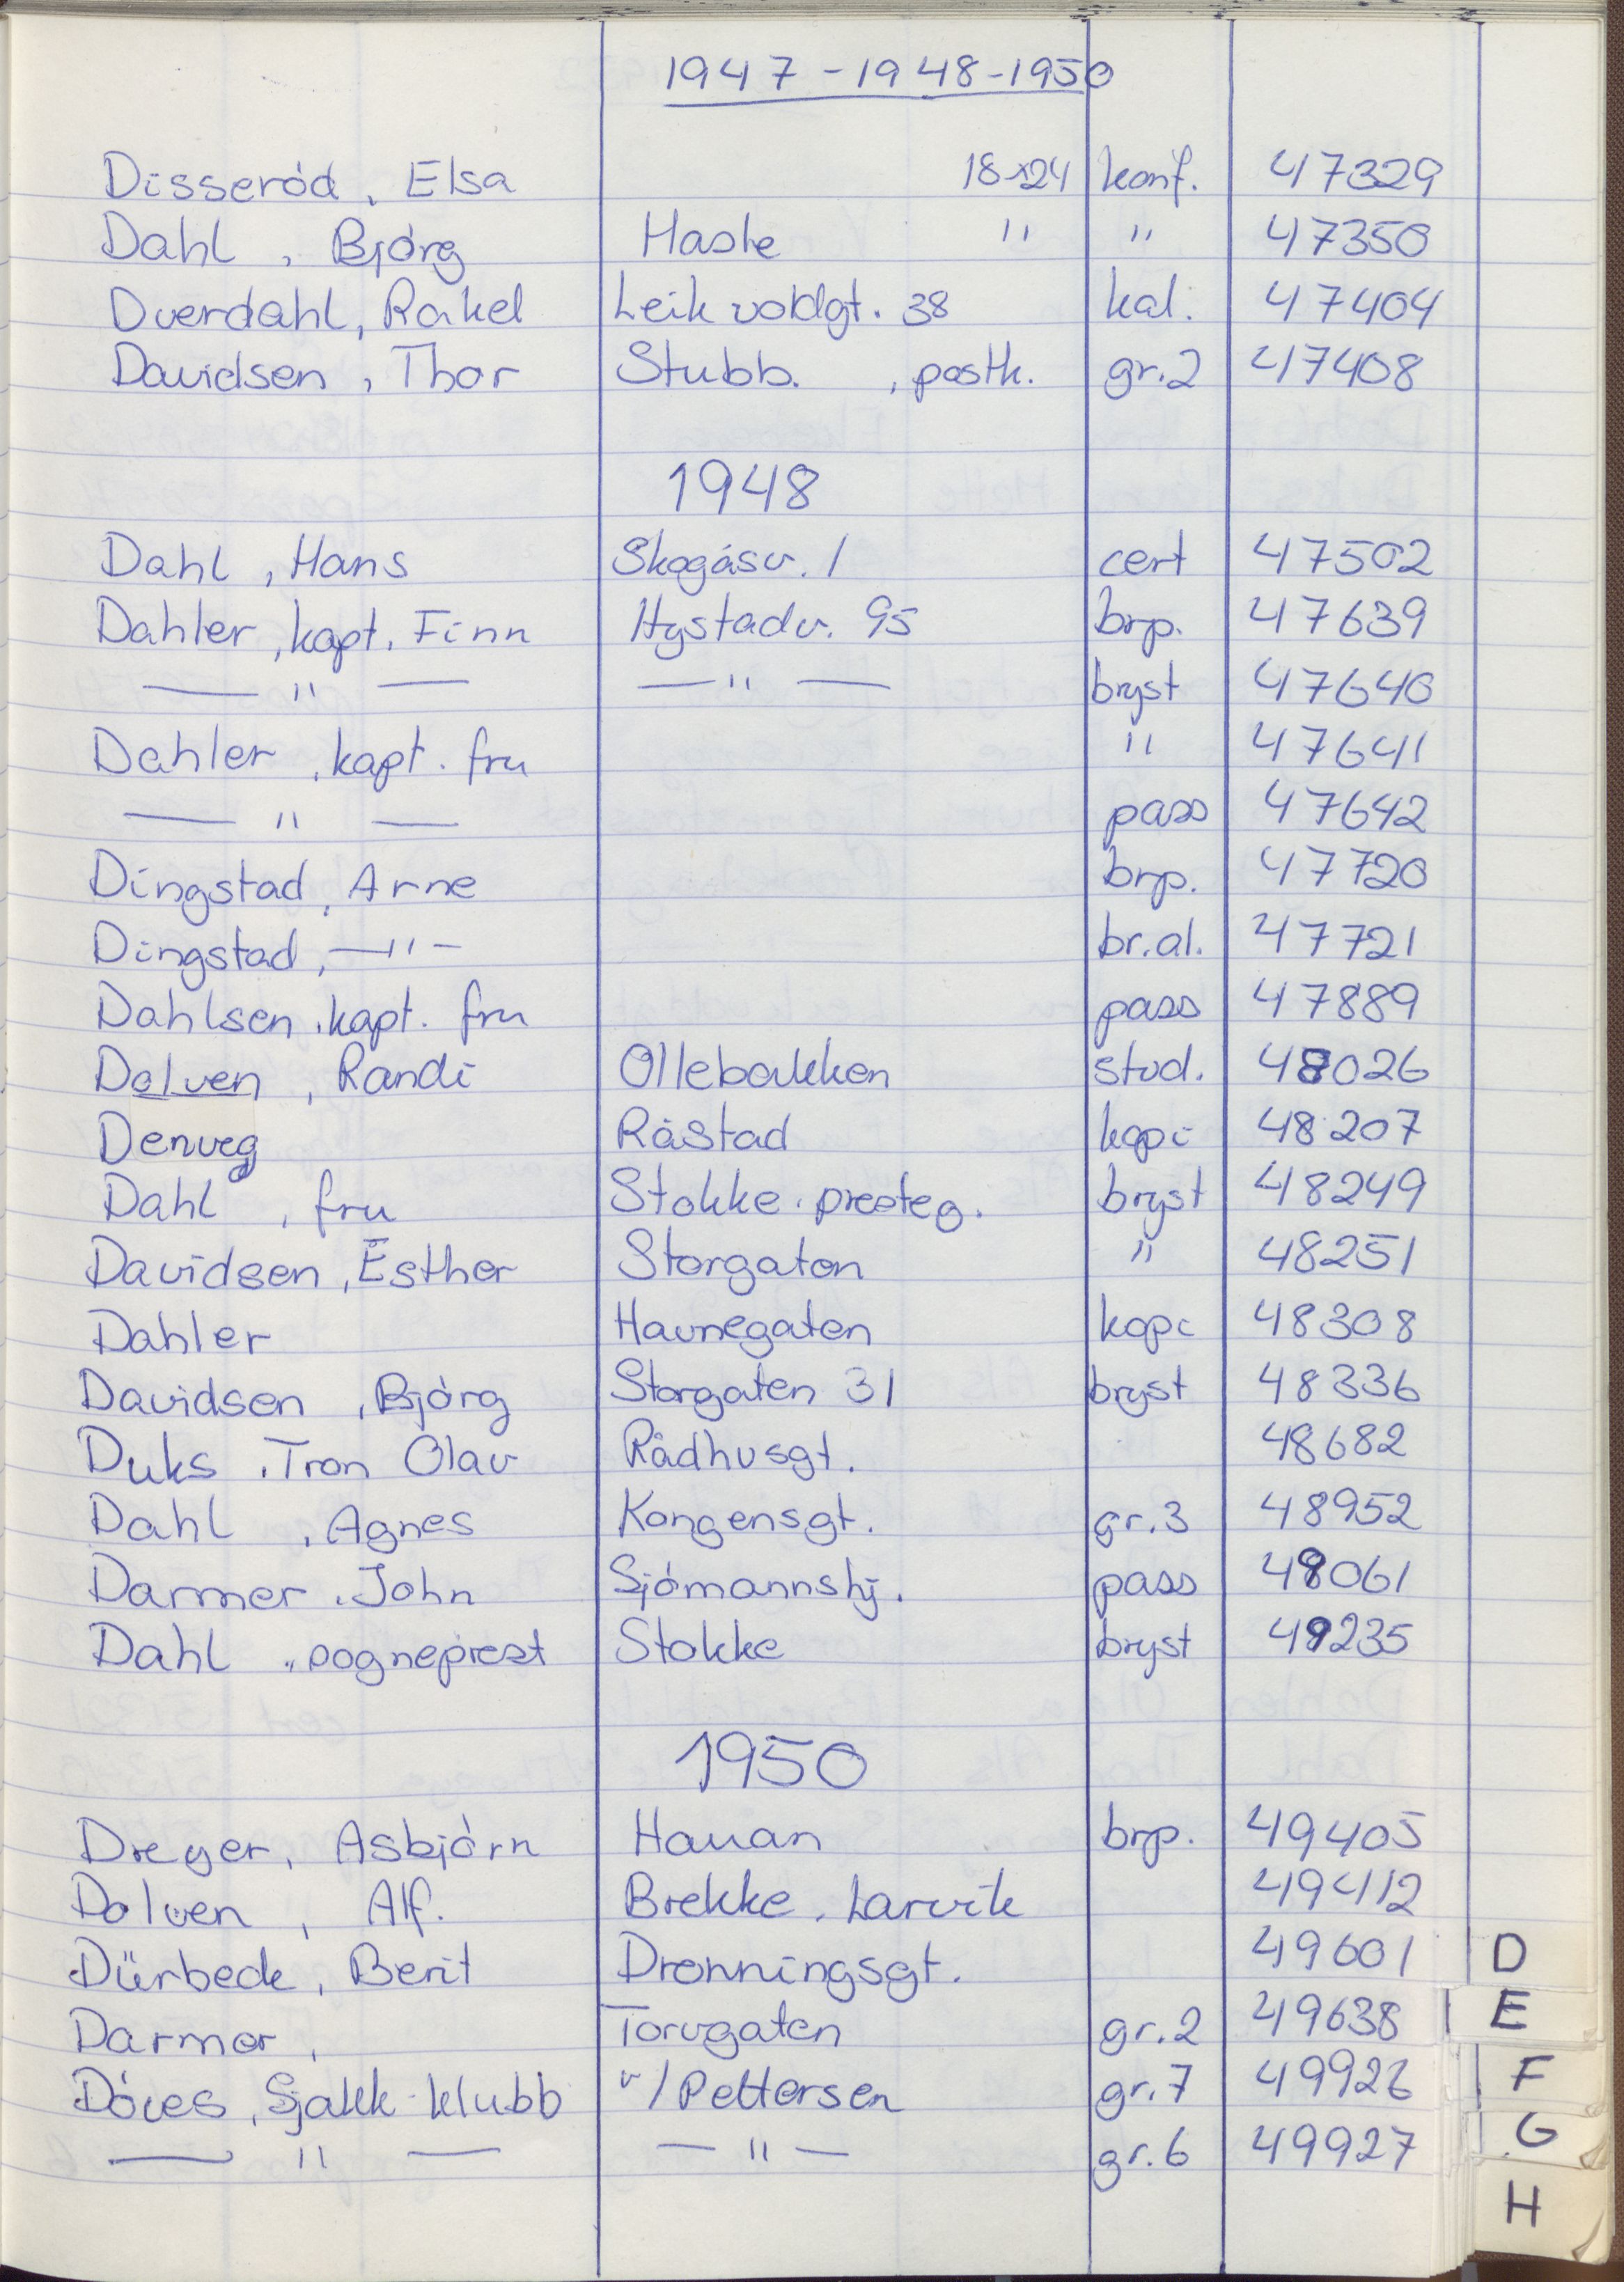 1947-1948-1950
Disseród, Elsa 18x24 konf. 47329
Dahl, Bjórg Hasle " " 47350
Dverdahl, Rakel Leikvoldgt. 38 kal. 47404
Davidsen, Thor Stubb. , postk. gr.2 47408
1948
Dahl, Hans Skogásv. 1 cert 47502
Dahler, kapt. Finn Hystadv. 95 brp. 47639
— " — — " — bryst 47640
Dahler, kapt. fru " 47641
— " — pass 47642
Dingstad, Arne brp. 47720
Dingstad, —"— br.al. 47721
Dahlsen, kapt. fru pass 47889
Dalven, Randi Ollebakken stud. 48026
Denveg Råstad kopi 48207
Dahl, fru Stokke presteg. bryst 48249
Davidsen, Esther Storgaten " 48251
Dahler Havnegaten kopi 48308
Davidsen, Bjórg Storgaten 31 bryst 48336
Duks, Tron Olav Rådhusgt. 48682
Dahl, Agnes Kongensgt. gr.3 48952
Darmer, John Sjómannshj. pass 49061
Dahl, sogneprest Stokke bryst 49235
1950
Dreyer, Asbjórn Hauan brp. 49405
Dolven, Alf. Brekke, Larvik 49412
Dürbeck, Berit Dronningsgt. 49601
Darmer, Torvgaten gr.2 49638
Dóves, Sjakk-klubb v/Pettersen gr.7 49926
— " — — " — gr.6 49927
D
E
F
G
H